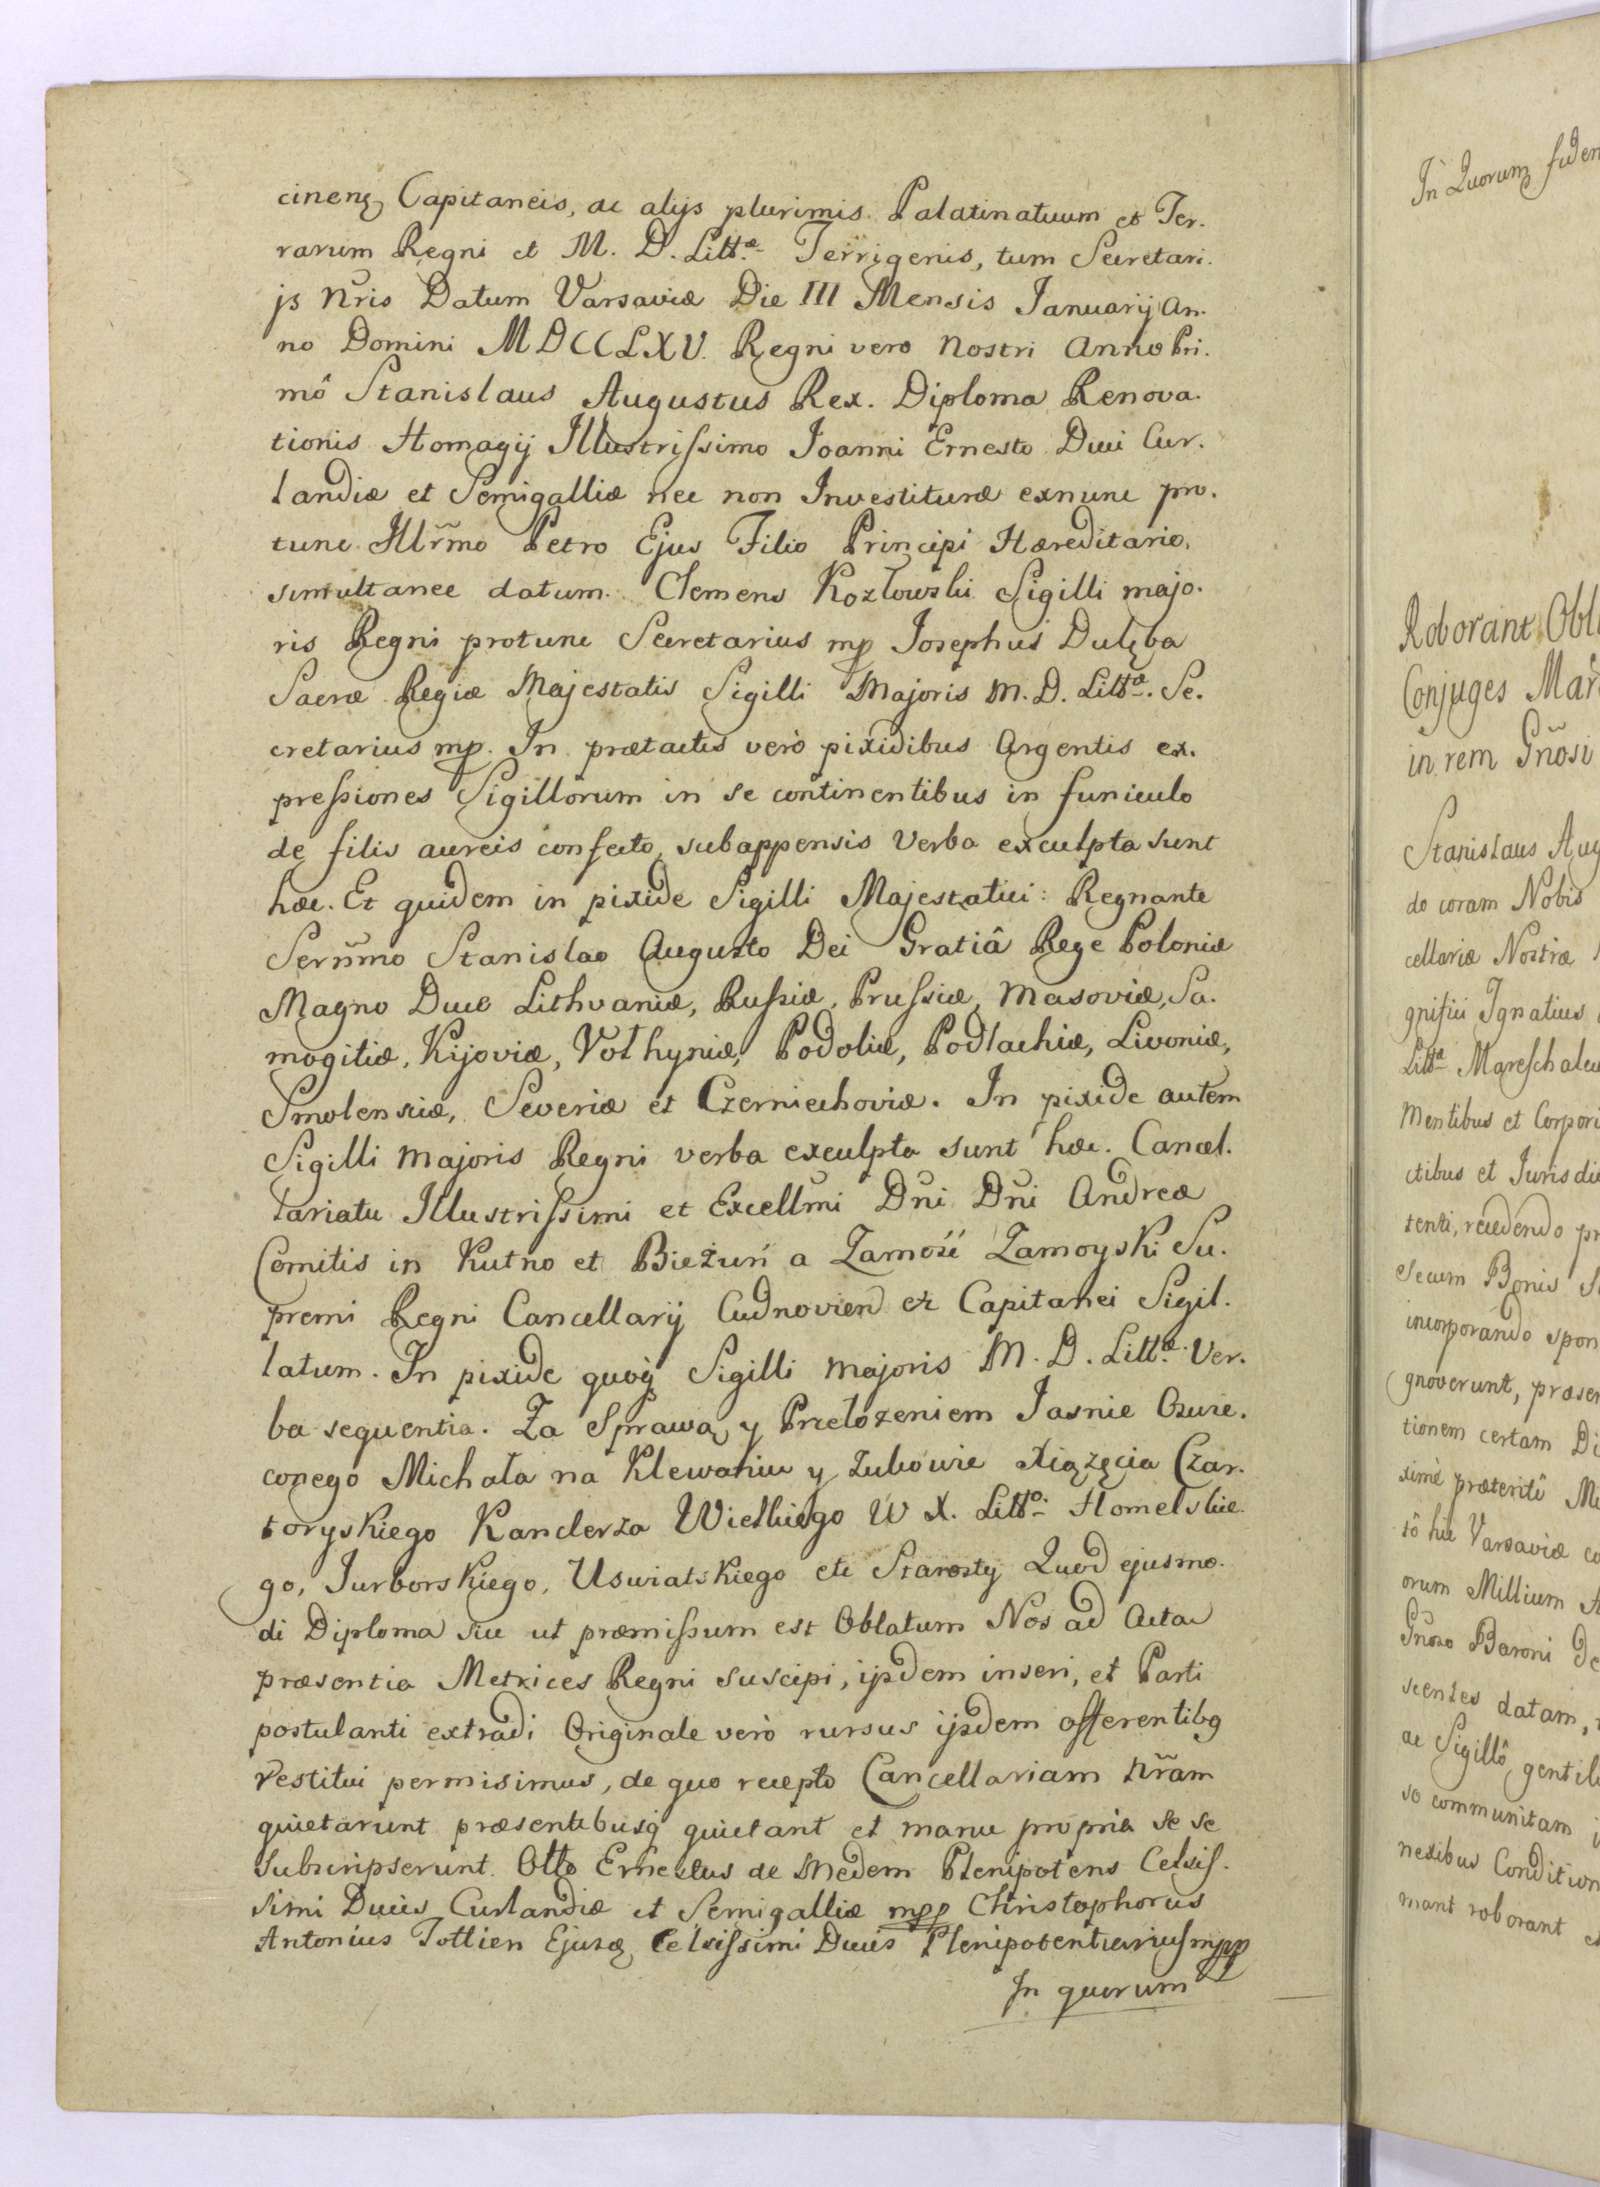 cinenę Capitaneis, ac alijs plurimis Palatinatuum et Ter.
rarum Regni et M. D. Littæ Terrigenis, tum Secretari.
js Nr̃is Datum Varsaviæ Die III Mensis Januarij An.
no Domini MDCCLXV. Regni vero Nostri Anno Pri.
mô Stanislaus Augustus Rex. Diploma Renova.
tionis Homagij Illustrissimo Joanni Ernesto Duci Cur.
landiæ et Semigalliæ nec non Investituræ exnunc pro.
tunc Illr̃mo Petro Ejus Filio Principi Hæreditario,
simultanee datum. Clemens Kozłowski Sigilli majo.
ris Regni protunc Secretarius mp Josephus Dulęba
Sacræ Regiæ Majestatis Sigilli Majoris M. D. Littæ. Se.
cretarius mp. In prætactis verò pixidibus Argenteis ex.
pressiones Sigillorum in se continentibus in funiculo
de filis aureis confecto, subappensis Verba exculpta sunt
hæc. Et quidem in pixide Sigilli Majestatici: Regnante
Serñmo Stanislao Augusto Dei Gratiâ Rege Poloniæ
Magno Duce Lithvaniæ, Russiæ, Prussiæ, Masoviæ, Sa.
mogitiæ, Kijoviæ, Vołhyniæ, Podoliæ, Podlachiæ, Livoniæ,
Smolensciæ, Severiæ et Czerniechoviæ. In pixide autem
Sigilli Majoris Regni verba exculpta sunt hæc. Cancel.
lariatu Illustrissimi et Excellm̃i Dñi Dñi Andreæ
Comitis in Kutno et Bieżuń a Zamość Zamoyski Su.
premi Regni Cancellarij Cudnovien et Capitanei Sigil.
latum. In pixide quoq̨ Sigilli majoris M. D. Littæ. Ver.
ba sequentia. Za Sprawą y Przełozeniem Jasnie Oswie.
conego Michała na Klewaniu y Zukowie Xiązęcia Czar.
toryskiego Kanclerza Wielkiego W X. Litto. Homelskie.
go, Jurborskiego, Uswiatskiego etc Starosty Quod ejusmo.
di Diploma sic ut præmissum est Oblatum Nos ad Acta
præsentia Metrices Regni suscipi, ijsdem inseri, et Parti
postulanti extradi Originale verò rursus ijsdem offerentibq
restitui permisimus, de quo recepto Cancellariam Nr̃am
quietarunt præsentibusq̨ quietant et manu propria se se
subscripserunt. Otto Ernestus de Medem Plenipotens Celsis.
simi Ducis Curlandiæ et Semigalliæ mpp Christophorus
Antonius Tottien Ejusdę Celsissimi Ducis Plenipotentiarius mpp
In quorum
In Quorum fidem
Roborant
Conjuges
in rem Gñosi
Stanislaus
do coram Nobis
cellariæ Nostræ
gnifici Ignatius
Littæ Mareschalcu
Mentibus et Corpori
ctibus et Jurisdi
tenti, recedendo
Secum Bonis
incorporando
gnoverunt,
tionem certam
ximè præteriti
tô hic Varsaviæ
orum Millium
Gñoso Baroni de
scentes datam,
ac Sigillô
so communitam
nexibus
mant roborant